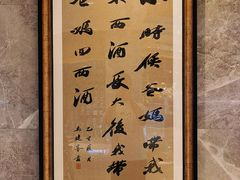 小時候爸媽帶我
來西酒長大後我帶
爸媽回西酒